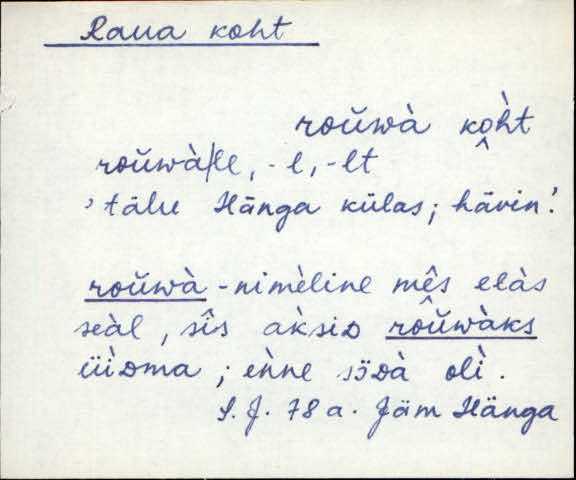 Raua koht
roŭwà ko̭h̀t
roŭwà/le, -l, -lt
'tālu Hānga külas; hävin.'
roŭwà -nimèline mês elàs
seàl, sîs ak̀siᴅ rôŭwàks
üìᴅma; eǹne sɜ̈ᴅà olì.
S. J. 78 a. Jäm Hänga